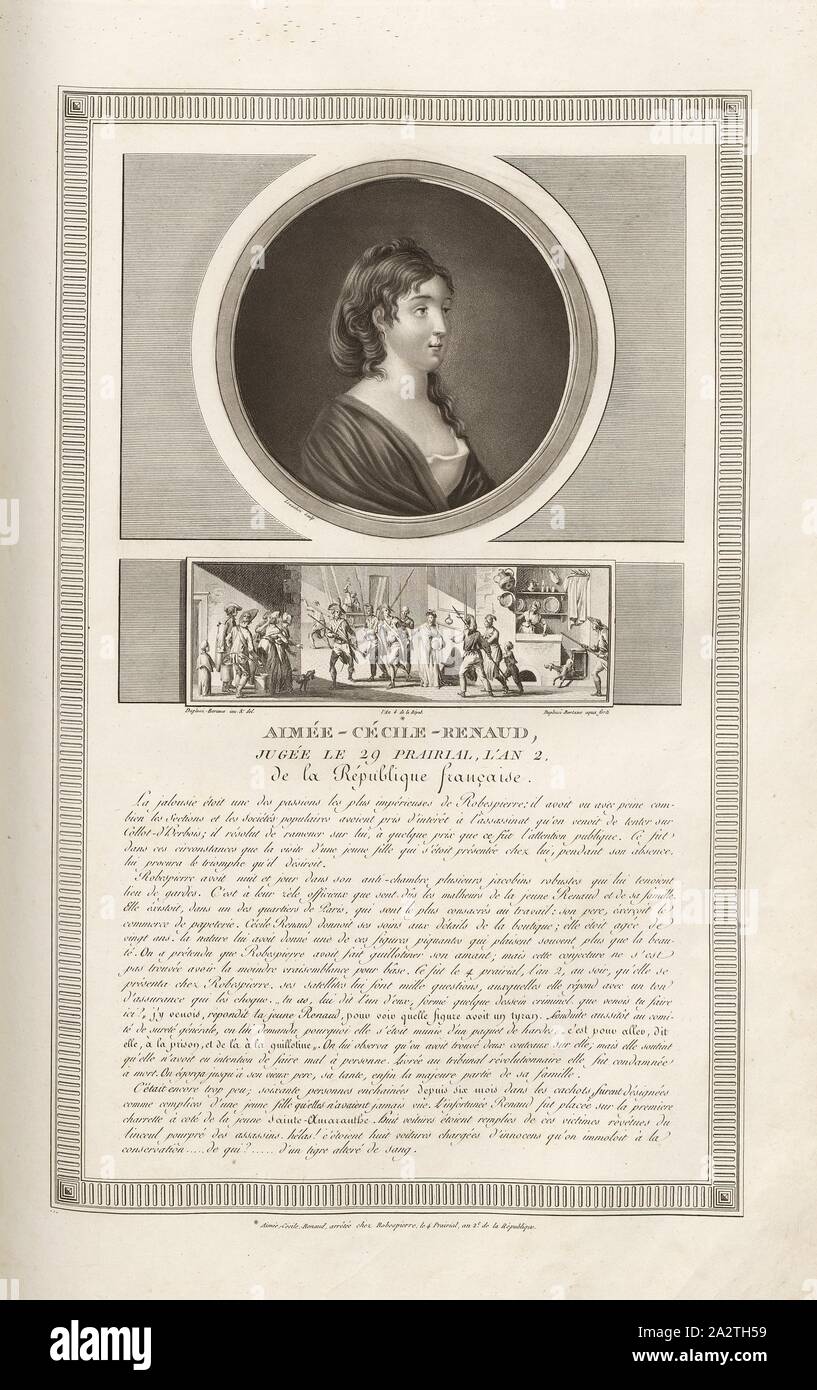 Levachez sculp.
Duplessi-Bertaux inv. & del.
l'An 4 de la Répub.
Duplessi-Bertaux aqua forti
*
AIMÉE-CÉCILE-RENAUD,
JUGÉE LE 29 PRAIRIAL, L'AN 2,
de la République française.
La jalousie étoit une des passions les plus impérieuses de Robespierre: il avoit vu avec peine com-
bien les Sections et les Sociétés populaires avoient pris d'intérêt à l'assassinat qu'on venoit de tenter sur
Collot-d'Herbois; il résolut de ramener sur lui, à quelque prix que ce fût l'attention publique. Ce fut
dans ces circonstances que la visite d'une jeune fille qui s'étoit présentée chez lui, pendant son absence,
lui procura le triomphe qu'il désiroit.
Robespierre avoit nuit et jour dans son anti-chambre plusieurs jacobins robustes qui lui tenoient
lieu de gardes. C'est à leur zèle officieux que sont dûs les malheurs de la jeune Renaud et de sa famille.
Elle éxistoit, dans un des quartiers de Paris, qui sont le plus consacrés au travail: son pere, exerçoit le
commerce de papeterie. Cécile Renaud donnoit ses soins aux détails de la boutique; elle étoit agée de
vingt ans. la nature lui avoit donné une de ces figures piquantes qui plaisent souvent plus que la beau-
té. On a prétendu que Robespierre avoit fait guillotiner son amant; mais cette conjecture ne s'est
pas trouvée avoir la moindre vraisemblance pour base. Ce fut le 4 prairial, l'an 2, au soir, qu'elle se
présenta chez Robespierre. ses satellites lui font mille questions, auxquelles elle répond avec un ton
d'assurance qui les choque. „tu as, lui dit l'un d'eux, formé quelque dessein criminel que venois tu faire
ici? „j'y venois, repondit la jeune Renaud, pour voir quelle figure avoit un tyran. Conduite aussitôt au comi-
té de sureté générale, on lui demande pourquoi elle s'étoit munie d'un paquet de hardes; „c'est pour aller, dit
elle, à la prison, et de là à la guillotine„. On lui observa qu'on avoit trouvé deux couteaux sur elle; mais elle soutint
qu'elle n'avoit eu intention de faire mal à personne. Livrée au tribunal révolutionnaire elle fut condamnée
à mort. On égorga jusqu'à son vieux pere, sa tante, enfin la majeure partie de sa famille.
C'était encore trop peu; soixante personnes enchainées depuis six mois dans les cachots, furent désignées
comme complices d'une jeune fille qu'elles n'avaient jamais vue. L'infortunée Renaud fut placée sur la première
charrette à coté de la jeune Sainte-Amaranthe. Huit voitures étoient remplies de ces victimes revêtues du
linceul pourpré des assassins. hélas! c'étoient huit voitures chargées d'innocens qu'on immoloit à la
conservation.....de qui?.....d'un tigre altéré de sang.
* Aimée-Cécile-Renaud, arrêtée chez Robespierre, le 4 Prairial, an 2ᵉ. de la République.
alamy
alamy
Image ID: 2A2TH59
www.alamy.com